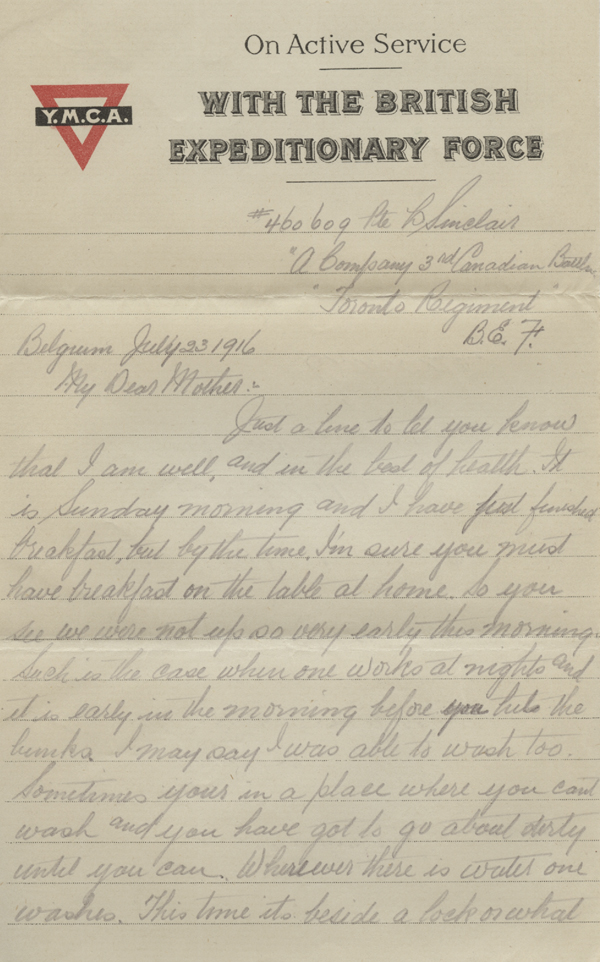 On Active Service
WITH THE BRITISH
EXPEDITIONARY FORCE
Y.M.C.A.
#460609 Pte L Sinclair
"A Company 3rd Canadian Battn.
"Toronto Regiment"
B.E.F.
Belgium July 23 1916
My Dear Mother:-
Just a line to let you know
that I am well, and in the best of health. It
is Sunday morning and I have just finished
breakfast, but by the time, I'm sure you must
have breakfast on the table at home. So you
see we were not up so very early this morning.
Such is the case when one works at nights and
it is early in the morning before you hits the
bunks. I may say I was able to wash too.
Sometimes your in a place where you cant
wash and you have got to go about dirty
until you can. Wherever there is water one
washes. This time its beside a lock or what